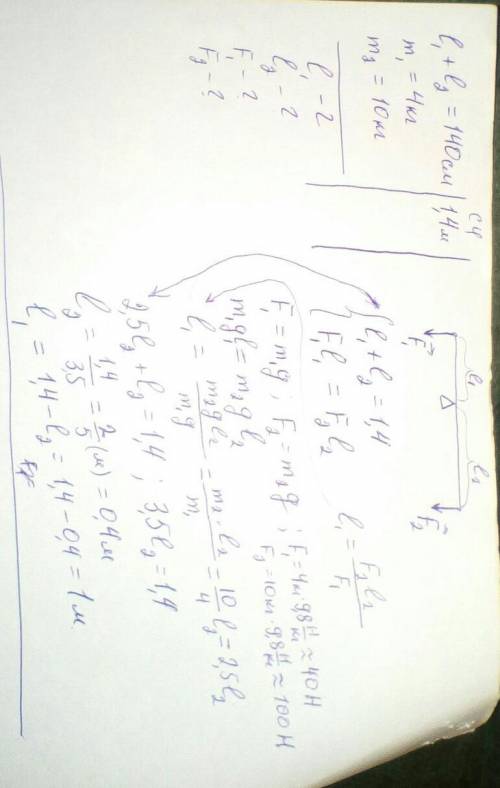 l₁ + l₂ = 140см
m₁ = 4кг
m₂ = 10кг
l₁ - ?
l₂ - ?
F₁ - ?
F₂ - ?
СИ
1,4м
l₁ l₂
Δ
F₁ F₂
{ l₁ + l₂ = 1,4
{ F₁l₁ = F₂l₂
l₁ = F₂l₂/F₁
F₁ = m₁g ; F₂ = m₂g ; F₁ = 4кг · 9,8 Н/кг ≈ 40Н
F₂ = 10кг · 9,8 Н/кг ≈ 100Н
m₁gl₁ = m₂gl₂
l₁ = m₂gl₂/m₁g = m₂·l₂/m₁ = 10/4 l₂ = 2,5l₂
2,5l₂ + l₂ = 1,4 ; 3,5l₂ = 1,4
l₂ = 1,4/3,5 = 2/5 (м) = 0,4м
l₁ = 1,4 - l₂ = 1,4 - 0,4 = 1м.